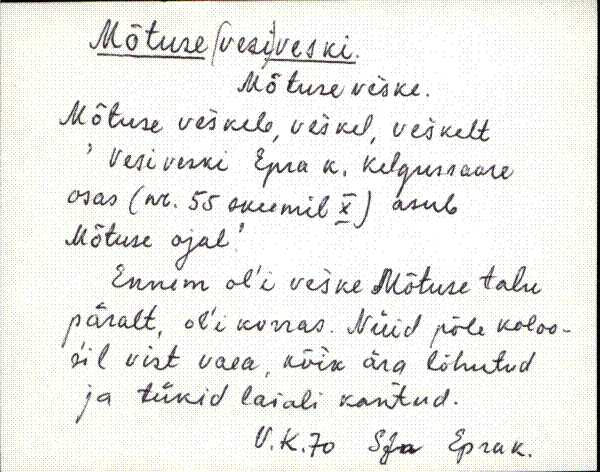 Mõtuse (vesi)veski.
Mõtuse veške.
Mõtuse veškele, veškel, veškelt
' Vesiveski Epra k. Kelgussaare
osas (nr. 55 skeemil X) asub
Mõtuse ojal.'
Ennem ol'i veške Mõtuse talu
päralt, ol'i korras. Nüid põle koloo-
s'il vist vaea, kõik ära lõhutud
ja tükid laiali kantud.
V.K.70 SJn Epra k.